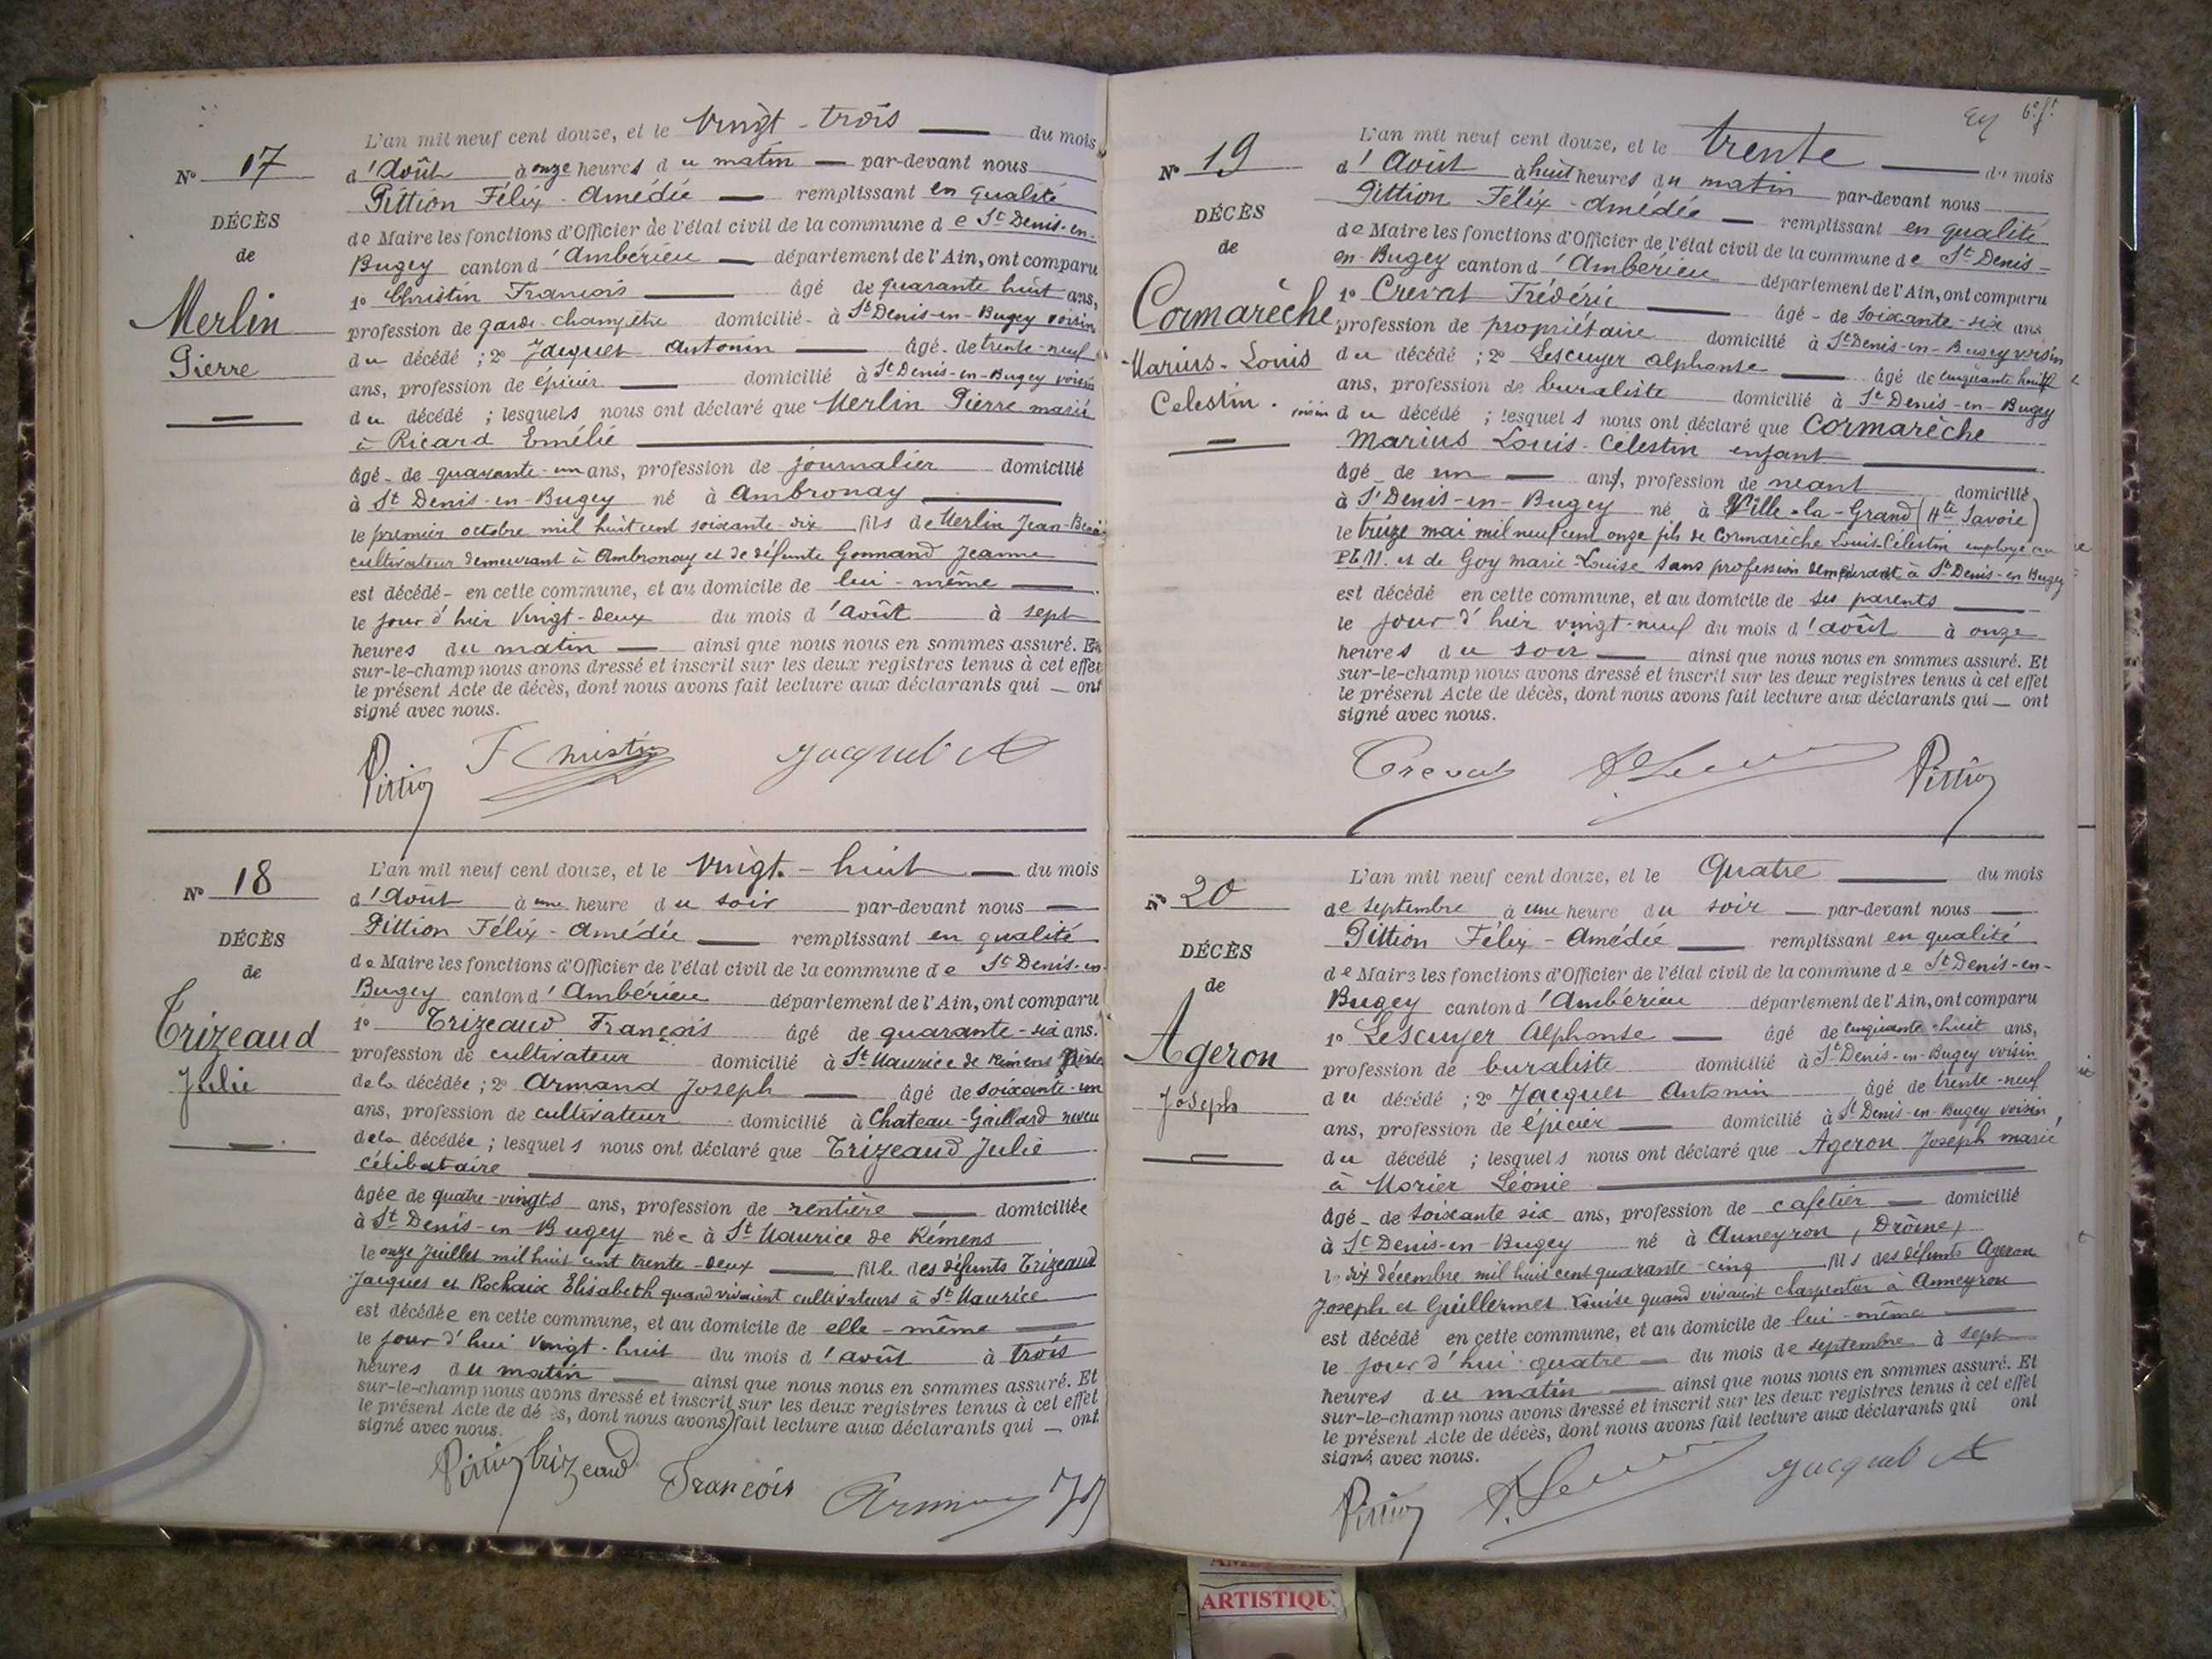 L'an mil neuf cent douze, et le Vingt-trois du mois
N° 17
d'Août à onze heures du matin par-devant nous
Pittion Félix-Amédée remplissant en qualité
DÉCÈS
de Maire les fonctions d'Officier de l'état civil de la commune de St Denis-en-
de
Bugey canton d'Ambérieu département de l'Ain, ont comparu
1° Christin François âgé de quarante huit ans,
Merlin
profession de garde-champêtre domicilié à St Denis-en-Bugey voisin
du décédé ; 2° Jacquet Antonin âgé de trente-neuf
Pierre
ans, profession de épicier domicilié à St Denis-en-Bugey voisin
du décédé ; lesquels nous ont déclaré que Merlin Pierre marié
à Ricard Emélie
âgé de quarante-un ans, profession de journalier domicilié
à St Denis-en-Bugey né à Ambronay
le premier octobre mil huit cent soixante-dix fils de Merlin Jean-
cultivateur demeurant à Ambronay et de défunte Gonnand Jeanne
est décédé en cette commune, et au domicile de lui-même
le jour d'hier Vingt-deux du mois d'août à sept
heures du matin ainsi que nous nous en sommes assuré. Et
sur-le-champ nous avons dressé et inscrit sur les deux registres tenus à cet effet
le présent Acte de décès, dont nous avons fait lecture aux déclarants qui ont
signé avec nous.
Pittion F Christin Jacquet A
L'an mil neuf cent douze, et le Vingt-huit du mois
N° 18
d'Août à une heure du soir par-devant nous
Pittion Félix-Amédée remplissant en qualité
DÉCÈS
de Maire les fonctions d'Officier de l'état civil de la commune de St Denis-en-
de
Bugey canton d'Ambérieu département de l'Ain, ont comparu
1° Trizeaud François âgé de quarante-six ans.
Trizeaud
profession de cultivateur domicilié à St Maurice de Rémens
Julie
de la décédée ; 2° Armand Joseph âgé de soixante-un
ans, profession de cultivateur domicilié à Chateau-Gaillard neveu
de la décédée ; lesquels nous ont déclaré que Trizeaud Julie
célibataire
âgée de quatre-vingts ans, profession de rentière domiciliée
à St Denis-en Bugey née à St Maurice de Rémens
le onze Juillet mil huit cent trente-deux fille des défunts Trizeaud
Jacques et Rochaix Elisabeth quand vivaient cultivateurs à St Maurice
est décédée en cette commune, et au domicile de elle-même
le jour d'hui Vingt-huit du mois d'août à trois
heures du matin ainsi que nous nous en sommes assuré. Et
sur-le-champ nous avons dressé et inscrit sur les deux registres tenus à cet effet
le présent Acte de décès, dont nous avons fait lecture aux déclarants qui ont
signé avec nous.
Pittion Trizeaud François Armand
6e ft
L'an mil neuf cent douze, et le trente du mois
N° 19
d'Août à huit heures du matin par-devant nous
Pittion Félix-Amédée remplissant en qualité
DÉCÈS
de Maire les fonctions d'Officier de l'état civil de la commune de St Denis-
de
en-Bugey canton d'Ambérieu département de l'Ain, ont comparu
1° Crevat Frédéric âgé de soixante-six ans
Cormarèche
profession de propriétaire domicilié à St Denis-en-Bugey voisin
Marius-Louis
du décédé ; 2° Lescuyer Alphonse âgé de cinquante huit
ans, profession de buraliste domicilié à St Denis-en-Bugey
Celestin.
voisin du décédé ; lesquels nous ont déclaré que Cormarèche
Marius Louis-Célestin enfant
âgé de un an, profession de néant domicilié
à St Denis-en-Bugey né à Ville-la-Grand (Hte Savoie)
le treize mai mil neuf cent onze fils de Cormarèche Louis-Célestin employé au
P.L.M. et de Goy Marie-Louise sans profession demeurant à St Denis-en-Bugey
est décédé en cette commune, et au domicile de ses parents
le jour d'hier vingt-neuf du mois d'août à onze
heures du soir ainsi que nous nous en sommes assuré. Et
sur-le-champ nous avons dressé et inscrit sur les deux registres tenus à cet effet
le présent Acte de décès, dont nous avons fait lecture aux déclarants qui ont
signé avec nous.
Crevat Pittion
L'an mil neuf cent douze, et le Quatre du mois
N° 20
de septembre à une heure du soir par-devant nous
Pittion Félix-Amédée remplissant en qualité
DÉCÈS
de Maire les fonctions d'Officier de l'état civil de la commune de St Denis-en-
de
Bugey canton d'Ambérieu département de l'Ain, ont comparu
1° Lescuyer Alphonse âgé de cinquante-huit ans,
Ageron
profession de buraliste domicilié à St Denis-en-Bugey voisin
Joseph
du décédé ; 2° Jacquet Antonin âgé de trente-neuf
ans, profession de épicier domicilié à St Denis-en-Bugey voisin
du décédé ; lesquels nous ont déclaré que Ageron Joseph marié
à Morier Léonie
âgé de soixante six ans, profession de cafetier domicilié
à St Denis-en-Bugey né à Anneyron (Drôme)
le dix décembre mil huit cent quarante-cinq fils des défunts Ageron
Joseph et Guillermet Louise quand vivaient charpentier à Anneyron
est décédé en cette commune, et au domicile de lui-même
le jour d'hui quatre du mois de septembre à sept
heures du matin ainsi que nous nous en sommes assuré. Et
sur-le-champ nous avons dressé et inscrit sur les deux registres tenus à cet effet
le présent Acte de décès, dont nous avons fait lecture aux déclarants qui ont
signé avec nous.
Pittion Jacquet A
ARTISTIQU